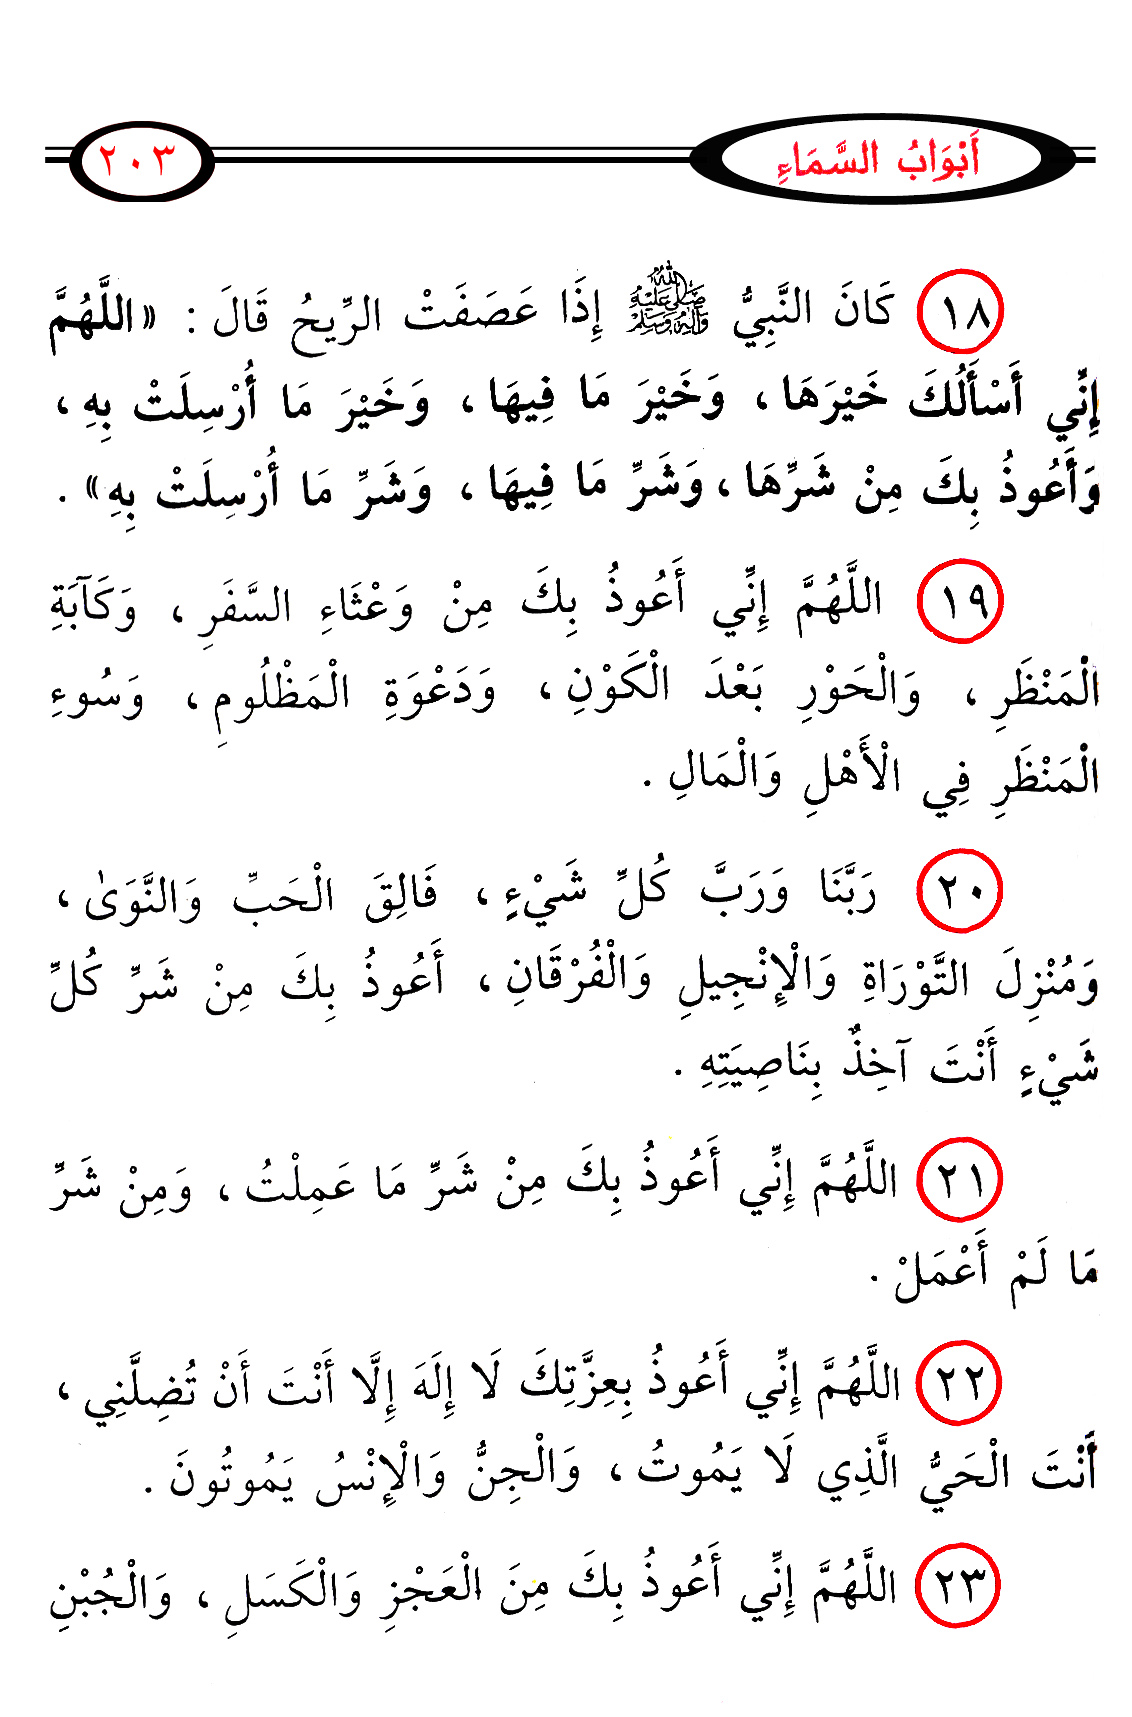 أَبْوَابُ السَّمَاءِ ٢٠٣
١٨ كَانَ النَّبِيُّ ﷺ إِذَا عَصَفَتْ الرِّيحُ قَالَ : «اللَّهُمَّ
إِنِّي أَسْأَلُكَ خَيْرَهَا، وَخَيْرَ مَا فِيهَا، وَخَيْرَ مَا أُرْسِلَتْ بِهِ،
وَأَعُوذُ بِكَ مِنْ شَرِّهَا، وَشَرِّ مَا فِيهَا، وَشَرِّ مَا أُرْسِلَتْ بِهِ».
١٩ اللَّهُمَّ إِنِّي أَعُوذُ بِكَ مِنْ وَعْثَاءِ السَّفَرِ، وَكَآبَةِ
الْمَنْظَرِ، وَالْحَوْرِ بَعْدَ الْكَوْنِ، وَدَعْوَةِ الْمَظْلُومِ، وَسُوءِ
الْمَنْظَرِ فِي الْأَهْلِ وَالْمَالِ.
٢٠ رَبَّنَا وَرَبَّ كُلِّ شَيْءٍ، فَالِقَ الْحَبِّ وَالنَّوَىٰ،
وَمُنْزِلَ التَّوْرَاةِ وَالْإِنْجِيلِ وَالْفُرْقَانِ، أَعُوذُ بِكَ مِنْ شَرِّ كُلِّ
شَيْءٍ أَنْتَ آخِذٌ بِنَاصِيَتِهِ.
٢١ اللَّهُمَّ إِنِّي أَعُوذُ بِكَ مِنْ شَرِّ مَا عَمِلْتُ، وَمِنْ شَرِّ
مَا لَمْ أَعْمَلْ.
٢٢ اللَّهُمَّ إِنِّي أَعُوذُ بِعِزَّتِكَ لَا إِلَهَ إِلَّا أَنْتَ أَنْ تُضِلَّنِي،
أَنْتَ الْحَيُّ الَّذِي لَا يَمُوتُ، وَالْجِنُّ وَالْإِنْسُ يَمُوتُونَ.
٢٣ اللَّهُمَّ إِنِّي أَعُوذُ بِكَ مِنَ الْعَجْزِ وَالْكَسَلِ، وَالْجُبْنِ